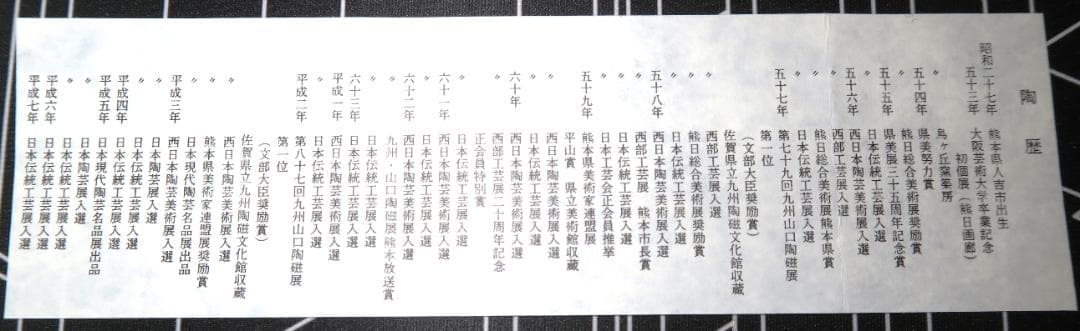 陶歴
昭和二十七年 熊本県人吉市出生
五十三年 大阪芸術大学卒業記念
初個展(熊日画廊)
〃 烏ヶ丘葉薬房
五十四年 県美努力賞
〃 熊日総合美術展奨励賞
五十五年 県美展三十五周年記念賞
〃 日本伝統工芸展入選
五十六年 西日本陶芸美術展入選
〃 西部工芸展入選
〃 熊日総合美術展熊本県賞
〃 日本伝統工芸展入選
五十七年 第七十九回九州山口陶磁展
第一位
(文部大臣奨励賞)
佐賀県立九州陶磁文化館収蔵
〃 西部工芸展入選
〃 熊日総合美術展奨励賞
〃 日本伝統工芸展入選
五十八年 西日本陶芸美術展入選
〃 西部工芸展 熊本市長賞
〃 日本伝統工芸展入選
〃 日本工芸会正会員推挙
五十九年 熊本県美術家連盟展
平山賞 県立美術館収蔵
〃 西日本陶芸美術展入選
〃 日本伝統工芸展入選
六十年 西日本陶芸美術展入選
〃 西部工芸展二十周年記念
正会員特別賞
〃 日本伝統工芸展入選
六十一年 西日本陶芸美術展入選
〃 日本伝統工芸展入選
六十二年 九州・山口陶磁展熊本放送賞
〃 日本伝統工芸展入選
六十三年 日本伝統工芸展入選
平成一年 西日本陶芸美術展入選
〃 日本伝統工芸展入選
平成二年 第八十七回九州山口陶磁展
第一位
(文部大臣奨励賞)
佐賀県立九州陶磁文化館収蔵
〃 西日本陶芸美術展入選
〃 熊本県美術家連盟展奨励賞
〃 日本現代陶芸名品展出品
平成三年 西日本陶芸美術展入選
〃 日本陶芸展入選
〃 日本伝統工芸展入選
平成四年 日本伝統工芸展入選
平成五年 日本現代陶芸名品展出品
〃 日本陶芸展入選
〃 日本伝統工芸展入選
平成六年 日本伝統工芸展入選
平成七年 日本伝統工芸展入選